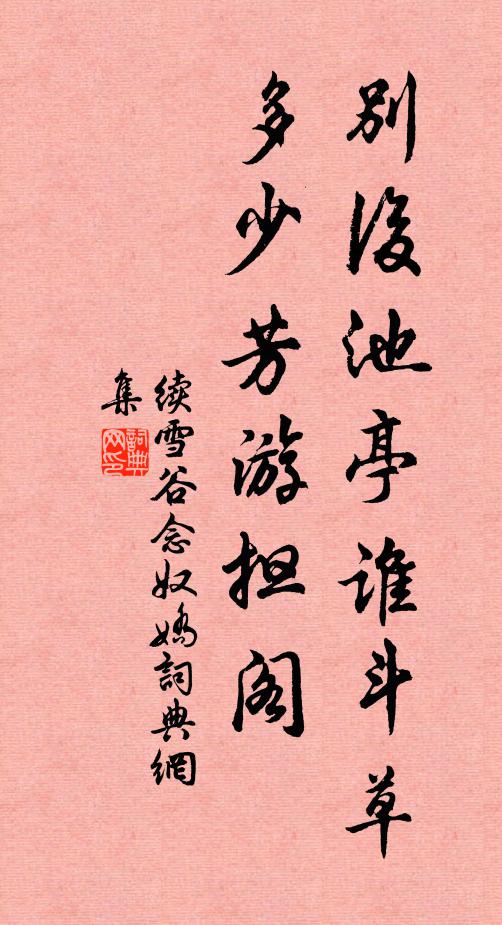 别後池亭谁斗草
多少芳游担阁
续雪谷念奴娇詞典網
集
詞典网印